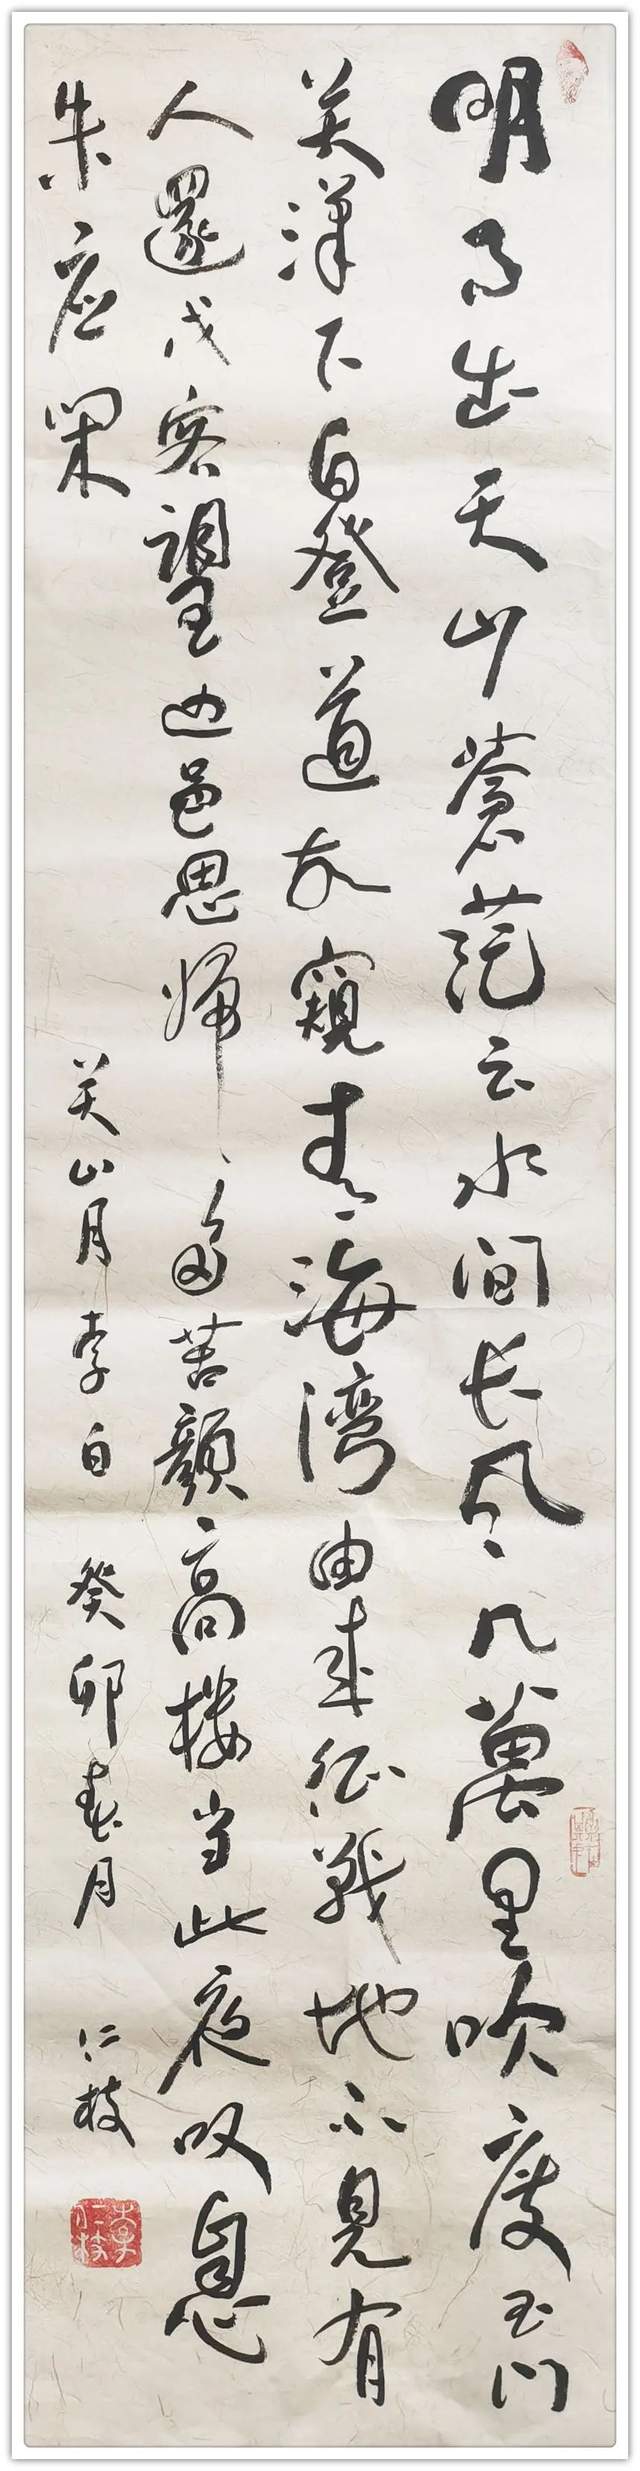 明月出天山蒼茫云水间长风几萬里吹度玉门
关漢下白登道胡窺青海湾由来征戰地不見有
人還戍客望边邑思歸多苦顔高楼当此夜叹息
未应闲
关山月李白 癸卯春月 仁枝
李仁枝